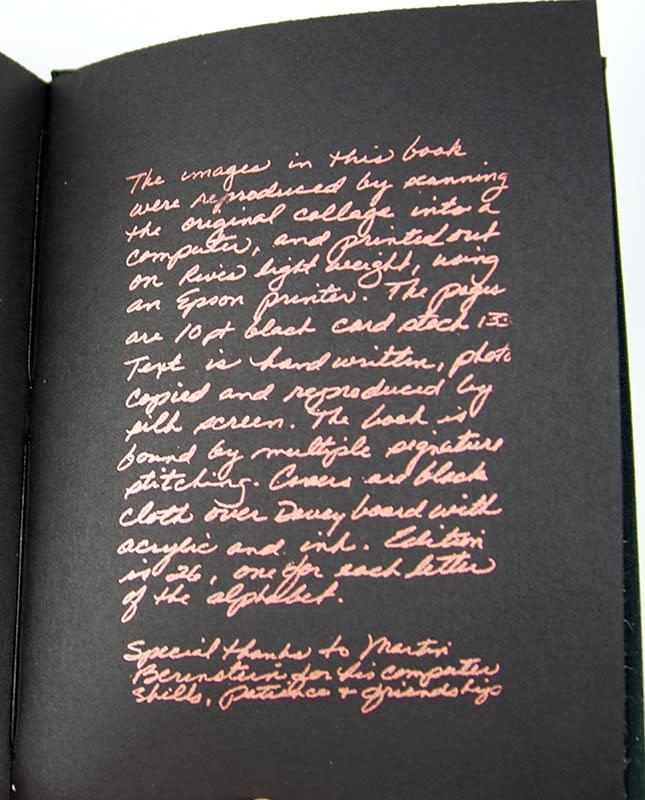 The images in this book
were reproduced by scanning
the original collage into a
computer, and printed out
on Rives light weight, using
an Epson printer. The pages
are 10 pt black card stock
Text is handwritten, photo
copied and reproduced by
silk screen. The book is
bound by multiple signature
stitching. Covers are black
cloth over Davey board with
acrylic and ink. Edition
is 26, one for each letter
of the alphabet.
Special thanks to Martin
Berinstein for his computer
skills, patience & friendship